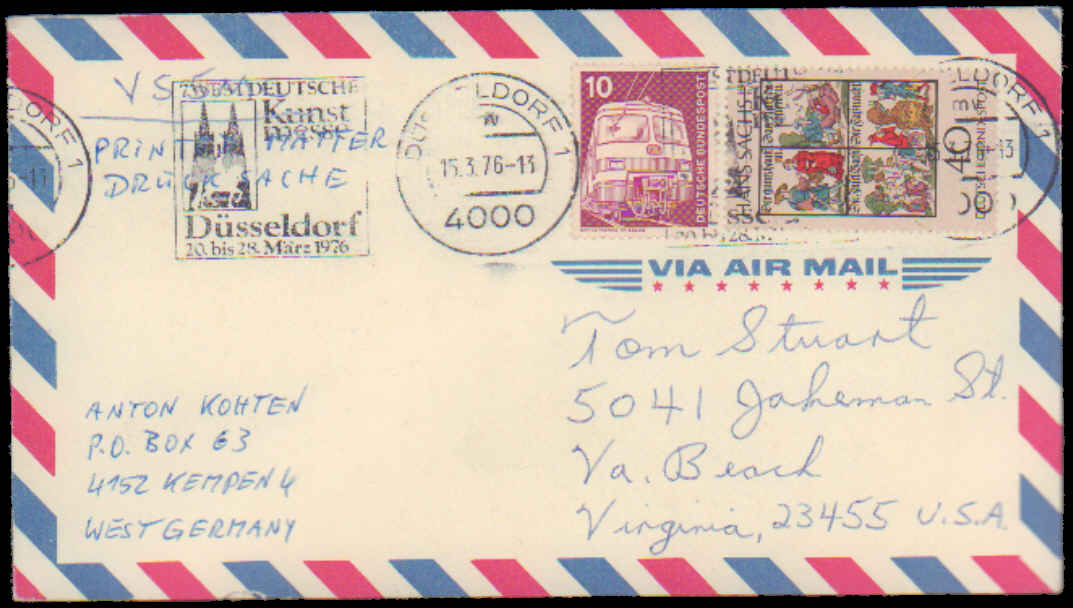 VS
WESTDEUTSCHE
Kunst
messe
PRINT MATTER
DRUCKSACHE
Düsseldorf
20. bis 28. März 1976
DÜSSELDORF 1
15.3.76-13
4000
10
DEUTSCHE BUNDESPOST
HANS SACHS
40
DEUTSCHE BUNDESPOST
LDORF 1
-13
DORF 1
-13
VIA AIR MAIL
Tom Stuart
5041 Jakeman St.
Va. Beach
Virginia, 23455 U.S.A.
ANTON KOHTEN
P.O. BOX 63
4152 KEMPEN 4
WEST GERMANY